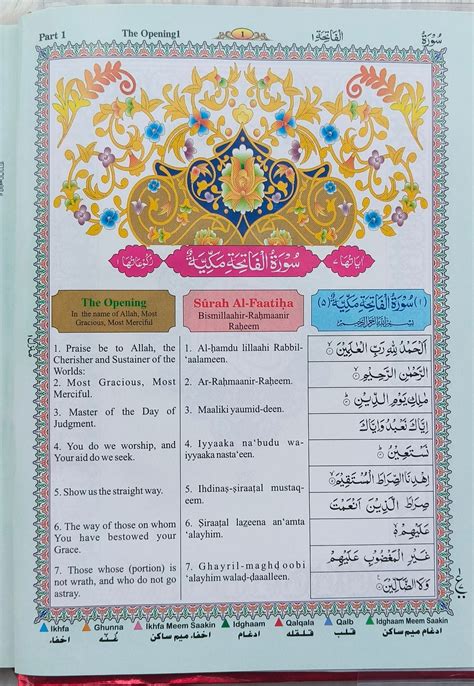 Part 1 The Opening1 1 الفاتحة ١ سورة
اٰیاتها ٧ سُوْرَةُ الْفَاتِحَةِ مَكِّيَّةٌ رکوعاتها ١
The Opening
In the name of Allah, Most
Gracious, Most Merciful
1. Praise be to Allah, the
Cherisher and Sustainer of the
Worlds:
2. Most Gracious, Most
Merciful.
3. Master of the Day of
Judgment.
4. You do we worship, and
Your aid do we seek.
5. Show us the straight way.
6. The way of those on whom
You have bestowed your
Grace.
7. Those whose (portion) is
not wrath, and who do not go
astray.
Sūrah Al-Faatiḥa
Bismillaahir-Raḥmaanir
Raḥeem
1. Al-ḥamdu lillaahi Rabbil-
'aalameen.
2. Ar-Raḥmaanir-Raḥeem.
3. Maaliki yaumid-deen.
4. Iyyaaka na'budu wa-
iyyaaka nasta'een.
5. Ihdinaṣ-ṣiraaṭal mustaq-
eem.
6. Ṣiraaṭal lazeena an'amta
'alayhim.
7. Ghayril-maghḍoobi
'alayhim walaḍ-ḍaalleen.
(١) سُوْرَةُ الْفَاتِحَةِ مَكِّيَّةٌ (٥)
بِسْمِ اللهِ الرَّحْمٰنِ الرَّحِيْمِ
اَلْحَمْدُ لِلّٰهِ رَبِّ الْعٰلَمِيْنَ ١
الرَّحْمٰنِ الرَّحِيْمِ ٢
مٰلِكِ يَوْمِ الدِّيْنِ ٣
اِيَّاكَ نَعْبُدُ وَاِيَّاكَ
نَسْتَعِيْنُ ٤
اِهْدِنَا الصِّرَاطَ الْمُسْتَقِيْمَ ٥
صِرَاطَ الَّذِيْنَ اَنْعَمْتَ
عَلَيْهِمْ ٦
غَيْرِ الْمَغْضُوْبِ عَلَيْهِمْ
وَلَا الضَّآلِّيْنَ ٧
Ikhfa Ghunna Ikhfa Meem Saakin Idghaam Qalqala Qalb Idghaam Meem Saakin
اخفاء غنّه اخفاء میم ساکن ادغام قلقله قلب ادغام میم ساکن